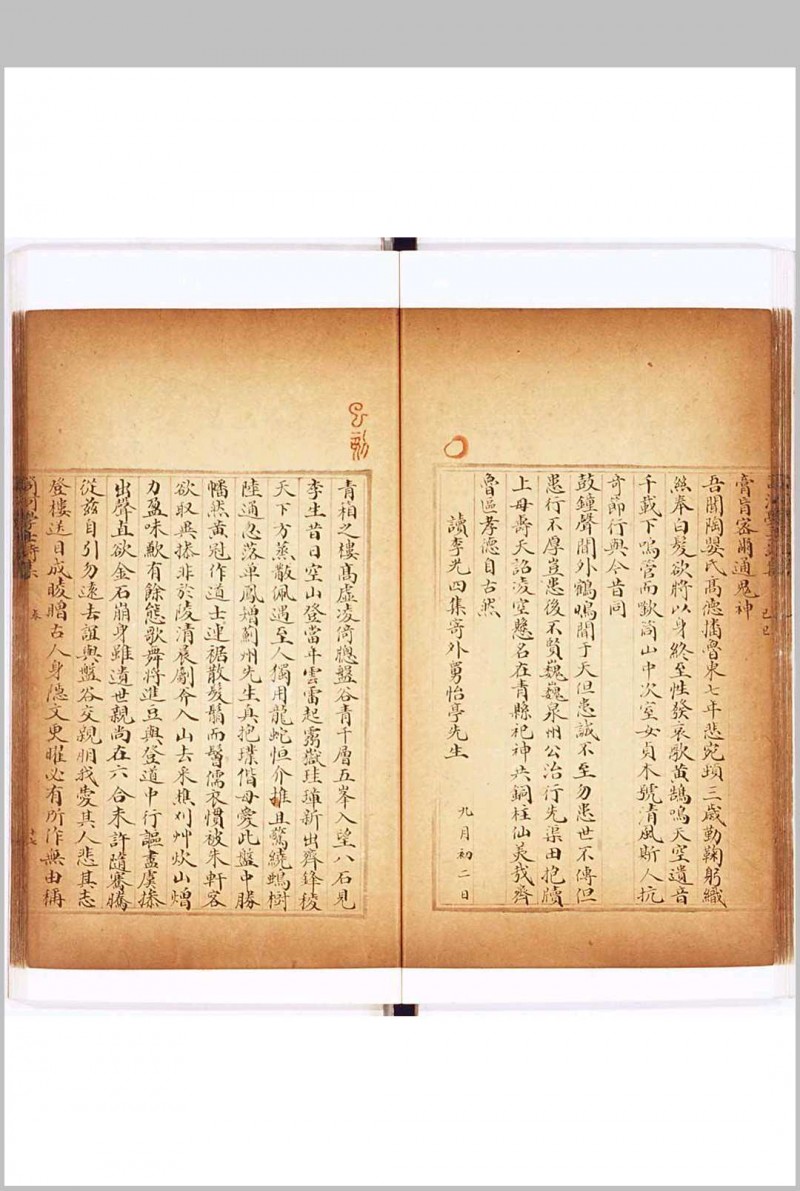 膏肓密爾通鬼神
吾聞陶嬰氏高德播魯東七年悲宛頸三歲勤鞠躬織
絲奉白髮欲將以身終至性發哀歌黃鵠鳴天空遺音
千載下嗚嗈而歎
山中次室女貞木號清風斯人抗
奇節行與今昔同
鼓鐘聲聞外鶴鳴聞于天但患誠不至勿患世不傳但
患行不厚豈患後不賢巍巍泉州公治行先渠田抱牘
上母壽天詔凌空懸名在青縣祀神共銅柱仙美哉齊
魯區孝德自古然
讀李光四集寄外舅怡亭先生
九月初二日
青箱之樓高虛凌倚窗盤谷青千層五峯入望八石見
李生昔日空山登當年雲雷起霧嶽珪璋新出齊鋒稜
天下方蒸散佩遇至人獨用龍蛇恒介推且驚繞蜩樹
陸通忽落單鳳矰薊州先生真抱璞偕母愛此盤中勝
幡然黃冠作道士連裾散髮鬅而鬙儒衣慣被朱軒客
欲取無捺非於陵清晨劚斧入山去來樵刈艸炊山熷
力盈味歉有餘態歌舞將進豆與登道中行謳盡虞捺
出聲直欲金石崩身雖遺世親尚在六合未許隨騫騰
從茲自引勿遠去誼與盤谷交親朋我愛其人悲其志
登樓送日成晙瞪古人身隱文更曜必有所作無由稱